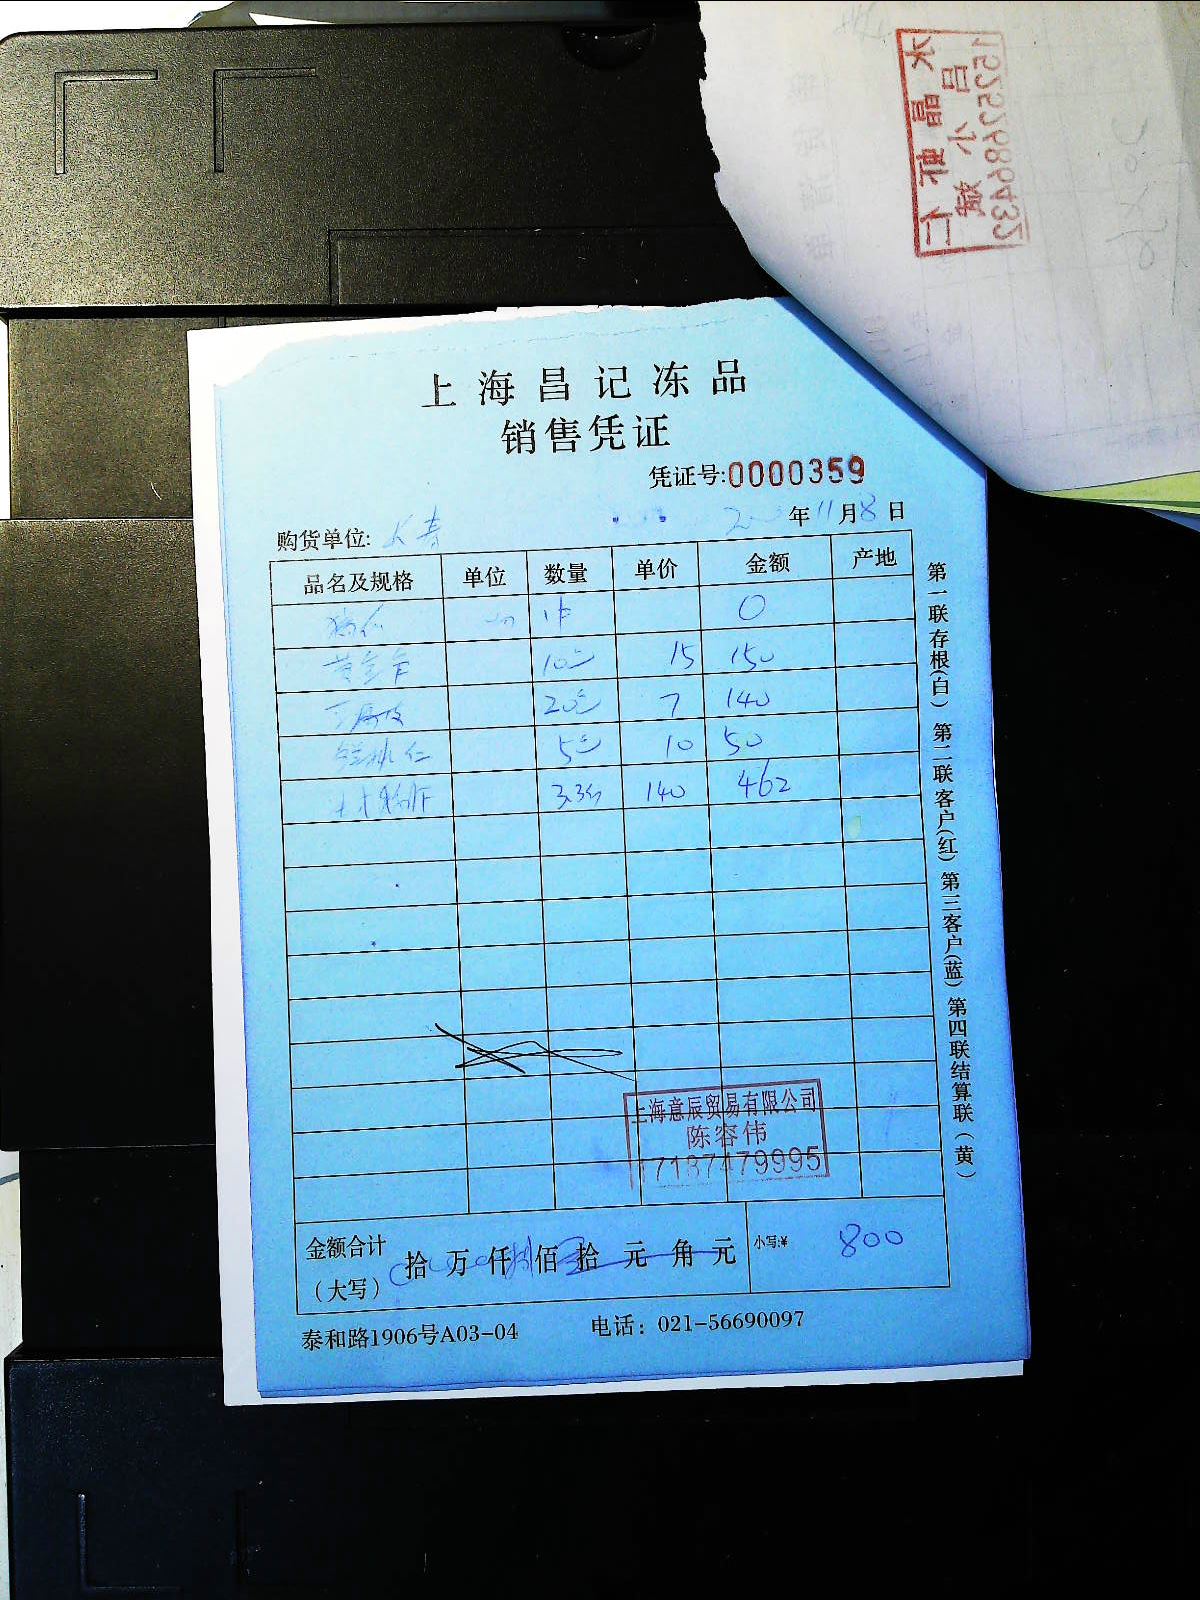 上海昌记冻品
销售凭证
凭证号:0000359
购货单位: 长春 年11月8日
品名及规格 单位 数量 单价 金额 产地
1件 0
10 15 150
20 7 140
5 10 50
3.3 140 462
上海意辰贸易有限公司
陈容伟
17187479995
金额合计(大写) 拾 万 仟 佰 拾 元 角 元 小写:¥ 800
泰和路1906号A03-04 电话：021-56690097
第一联存根(白) 第二联客户(红) 第三客户(蓝) 第四联结算联(黄)
水晶虾仁
吕小斌
15252686432